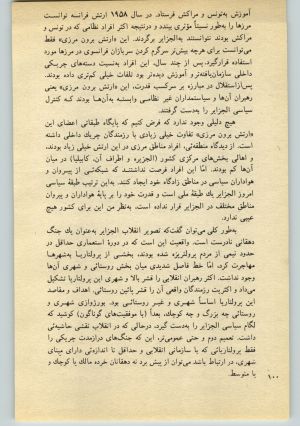 آموزش به‌تونس و مراکش فرستاد. در سال ۱۹۵۸ ارتش فرانسه توانست
مرزها را به‌طور نسبتاً مؤثری ببندد و درنتیجه اکثر افراد نظامی که در تونس و
مراکش بودند نتوانستند به‌الجزایر برگردند. این «ارتش برون مرزی» فقط
می‌توانست برای هرچه بیش‌تر سرگرم کردن سربازان فرانسوی در مرزها مورد
استفاده قرارگیرد. پس از چند سال، این افراد به‌نسبت دسته‌های چریکی
داخلی سازمان‌یافته‌تر و آموزش دیده‌تر بود تلفات خیلی کم‌تری داده بودند.
پس‌ازاستقلال در مبارزه بر سرکسب قدرت، این «ارتش برون مرزی» یعنی
رهبران آن‌ها و سیاستمداران غیر نظامی وابسته به‌آن‌ها بودند که کنترل
سیاسی الجزایر را به‌دست گرفتند.
هیچ دلیلی وجود ندارد که فرض کنیم که پایگاه طبقاتی اعضای این
«ارتش برون مرزی» تفاوت خیلی زیادی با رزمندگان چریک داخلی داشته
است. از دیدگاه منطقه‌ئی، افراد مناطق مرزی در این ارتش خیلی زیاد بودند،
و اهالی بخش‌های مرکزی کشور (الجزیره و اطراف آن، کابیلیا) در میان
آن‌ها کم بودند. امّا این افراد فرصت نداشتند که شبکه‌ئی از پیروان و
هواداران سیاسی در مناطق زادگاه خود ایجاد کنند. به‌این ترتیب طبقهٔ سیاسی
امروز الجزایر یک طبقهٔ ملی است و قدرت خود را بر پایهٔ هواداران و پیروان
مناطق مختلف در الجزایر قرار نداده است، به‌نظر من این برای کشور هیچ
عیبی ندارد.
به‌طور کلی می‌توان گفت‌که تصویر انقلاب الجزایر به‌عنوان یک جنگ
دهقانی نادرست است. واقعیت این است که در دورهٔ استعماری حداقل در
حدود نیمی از مردم پرولتریزه شده بودند، بخشی از پرولتاریا به‌شهرها
مهاجرت کرد، امّا خط فاصل شدیدی میان بخش روستائی و شهری آن‌ها
وجود نداشت. اکثر رهبران انقلابی را قشر بالا و شهری این پرولتاریا تشکیل
می‌داد و اکثریت رزمندگان واقعی آن را قشر پائین روستائی، اهداف و مقاصد
این پرولتاریا اساساً شهری و غیر روستائی بود. بورژوازی شهری و
روستائی چه بزرگ و چه کوچک، بعداً (با موفقیت‌های گوناگون) کوشید که
لگام سیاسی الجزایر را به‌دست گیرد، درحالی که در انقلاب نقشی حاشیه‌ئی
داشت. تعمیم دوم و حتی عمومی‌تر، این که جنگ‌های درازمدت چریکی را
فقط پرولتاریائی که با سازمانی انقلابی و حداقل تا اندازه‌ئی دارای مبنای
شهری، در ارتباط باشد می‌توان از پیش برد نه دهقانان خرده مالک یا کوچک و
یا متوسط.
۱۰۰